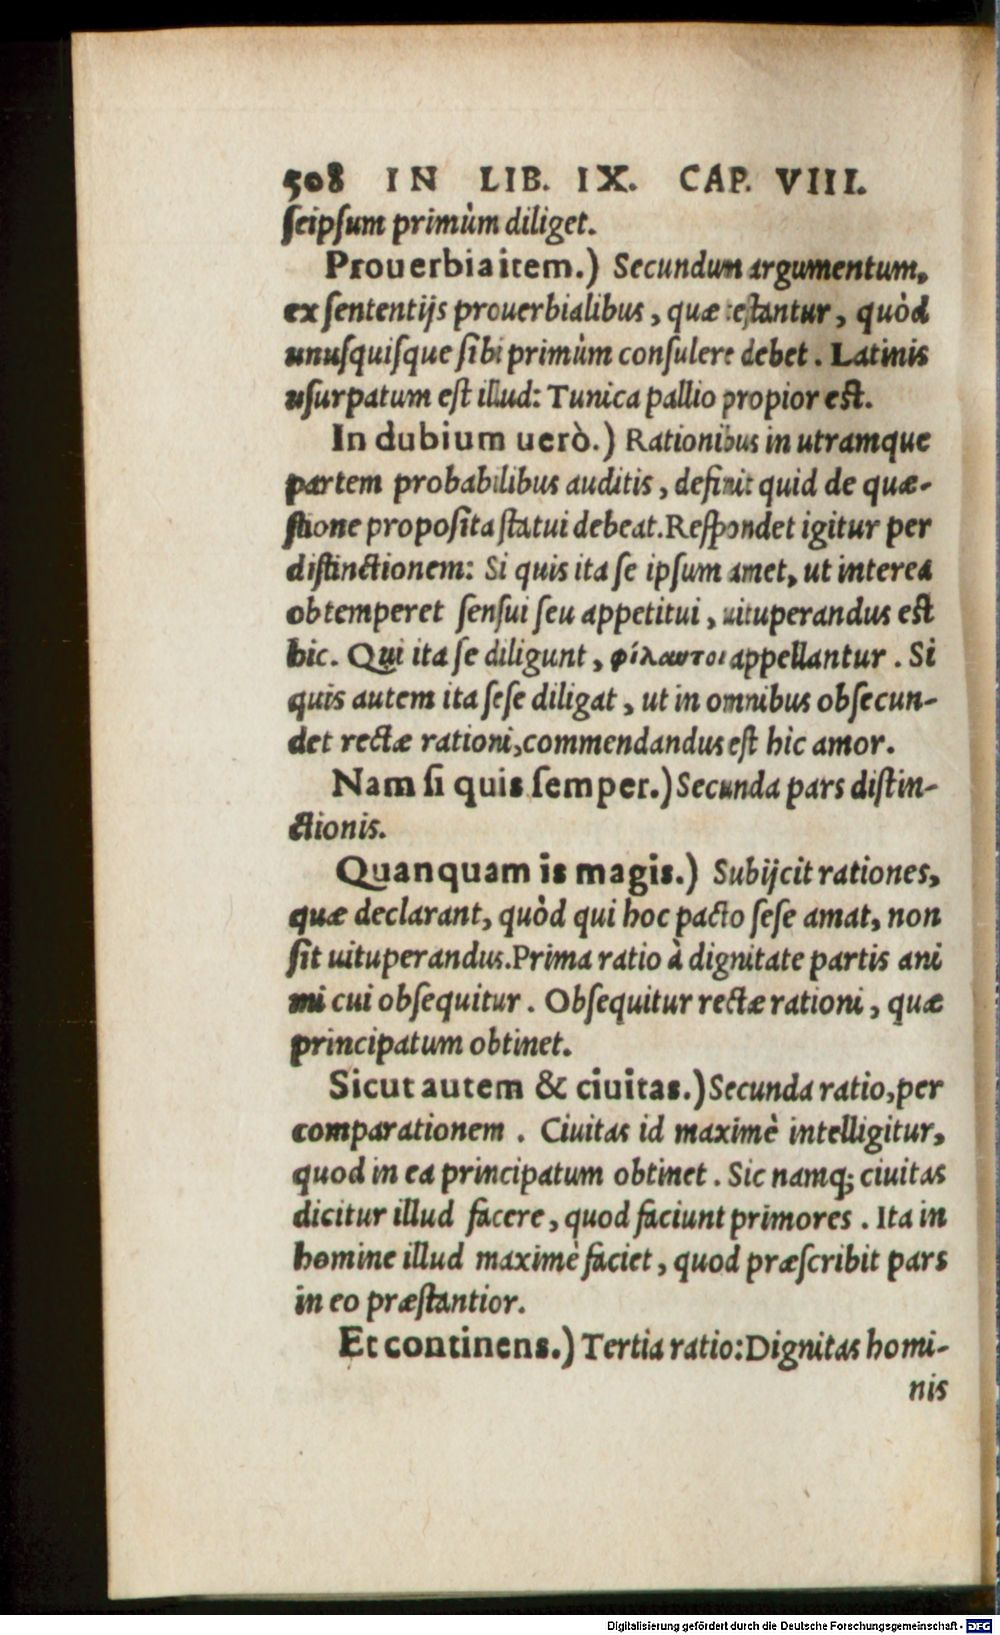 508 IN LIB. IX. CAP. VIII.
seipsum primùm diliget.
Prouerbia item.) Secundum argumentum,
ex sententijs prouerbialibus, quæ testantur, quòd
unusquisque sibi primùm consulere debet. Latinis
usurpatum est illud: Tunica pallio propior est.
In dubium uerò.) Rationibus in utramque
partem probabilibus auditis, definit quid de quæ-
stione proposita statui debeat. Respondet igitur per
distinctionem: Si quis ita se ipsum amet, ut interea
obtemperet sensui seu appetitui, uituperandus est
hic. Qui ita se diligunt, φίλαυτοι appellantur. Si
quis autem ita sese diligat, ut in omnibus obsecun-
det rectæ rationi, commendandus est hic amor.
Nam si quis semper.) Secunda pars distin-
ctionis.
Quanquam is magis.) Subijcit rationes,
quæ declarant, quòd qui hoc pacto sese amat, non
sit uituperandus. Prima ratio à dignitate partis ani
mi cui obsequitur. Obsequitur rectæ rationi, quæ
principatum obtinet.
Sicut autem & ciuitas.) Secunda ratio, per
comparationem. Ciuitas id maximè intelligitur,
quod in ea principatum obtinet. Sic namq; ciuitas
dicitur illud facere, quod faciunt primores. Ita in
homine illud maximè faciet, quod præscribit pars
in eo præstantior.
Et continens.) Tertia ratio: Dignitas homi-
nis
Digitalisierung gefördert durch die Deutsche Forschungsgemeinschaft - DFG